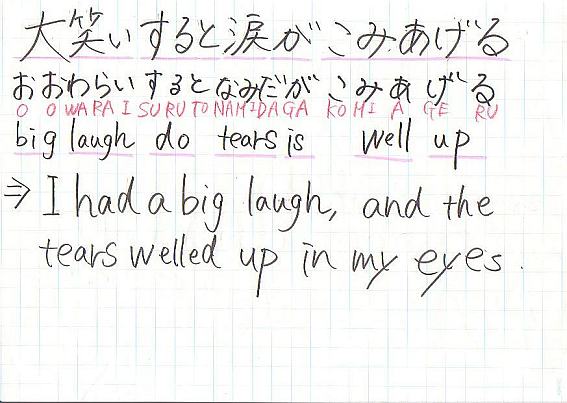 大笑いすると涙がこみあげる
おおわらいするとなみだが こみあげる
O O WARA I SURU TO NAMIDAGA KO MI A GE RU
big laugh do tears is well up
⇒ I had a big laugh, and the
tears welled up in my eyes.